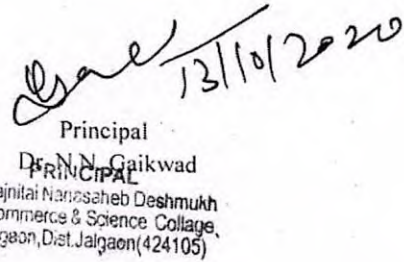 13/10/2020
Principal
Dr. N.N. Gaikwad
PRINCIPAL
ajnitai Nanasaheb Deshmukh
ommerce & Science Collage,
gaon, Dist. Jalgaon (424105)